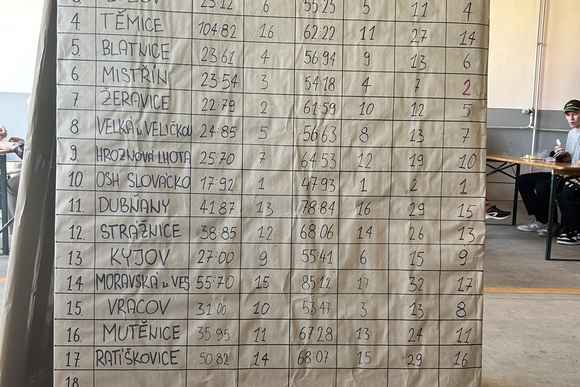 23.12 6 55.25 5 11 4
4 TĚMICE 104.82 16 62.22 11 27 14
5 BLATNICE 23.61 4 56.94 9 13 6
6 MISTŘÍN 23.54 3 54.18 4 7 2
7 ŽERAVICE 22.79 2 61.59 10 12 5
8 VELKÁ n. VELIČKOU 24.85 5 56.63 8 13 7
9. HROZNOVÁ LHOTA 25.70 7 64.53 12 19 10
10 OSH SLOVÁCKO 17.92 1 47.93 1 2 1
11. DUBŇANY 41.87 13 78.84 16 29 15
12. STRÁŽNICE 38.85 12 68.06 14 26 13
13 KYJOV 27.00 9 55.41 6 15 9
14 MORAVSKÁ n. VES 55.70 15 85.12 17 32 17
15. VRACOV 31.06 10 53.47 3 13 8
16. MUTĚNICE 35.95 11 67.28 13 24 11
17. RATÍŠKOVICE 50.82 14 68.07 15 29 16
18